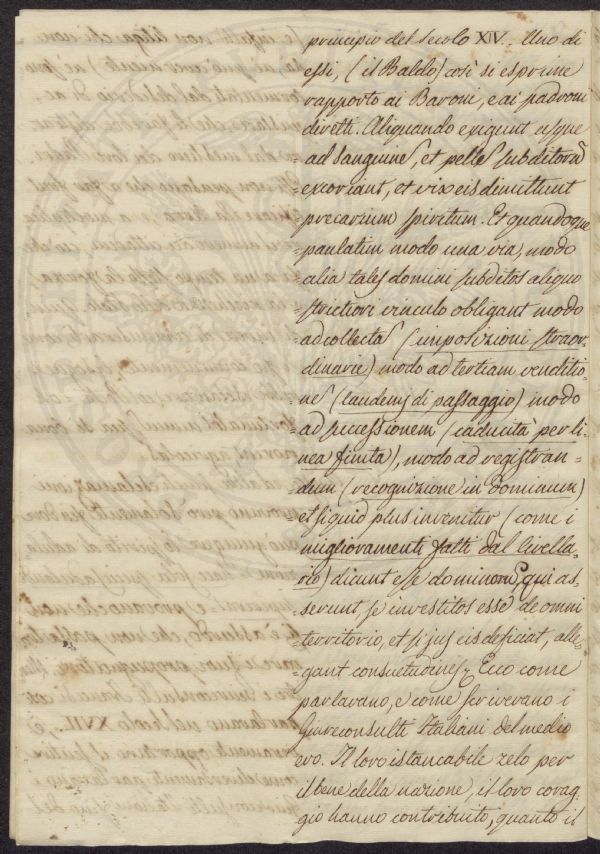 principio del secolo XIV. Uno di
essi, (il Baldo) così si esprime
rapporto ai Baroni, e ai padroni
diretti. Aliquando exigunt usque
=ad sanguinē, et pellē subditorū
=excoriant, et vix eis dimittunt
=precarium spiritum. Et quandoque
=paulatim modo una via, modo
=alia tales domini subditos aliquo
=strictiori vinculo obligant modo
=ad collectas (imposizioni straor-
dinarie) modo ad tertiam venditio-
=nē (laudemj di passaggio) modo
=ad successionem (caducità per li-
nea finita), modo ad registran-
=dum (recognizione in dominum)
=et siquid plus invenitur (come i
migliovamenti fatti dal livella-
rio) dicunt esse dominorū, qui as-
serunt se investitos esse de omni
=territorio, et si jus eis deficiat, alle=
=gant consuetudinē. Ecco come
parlavano, e come scrivevano i
Giureconsulti Italiani del medio
evo. Il loro istancabile zelo per
il bene della nazione, il loro corag-
gio hanno contribuito, quanto il